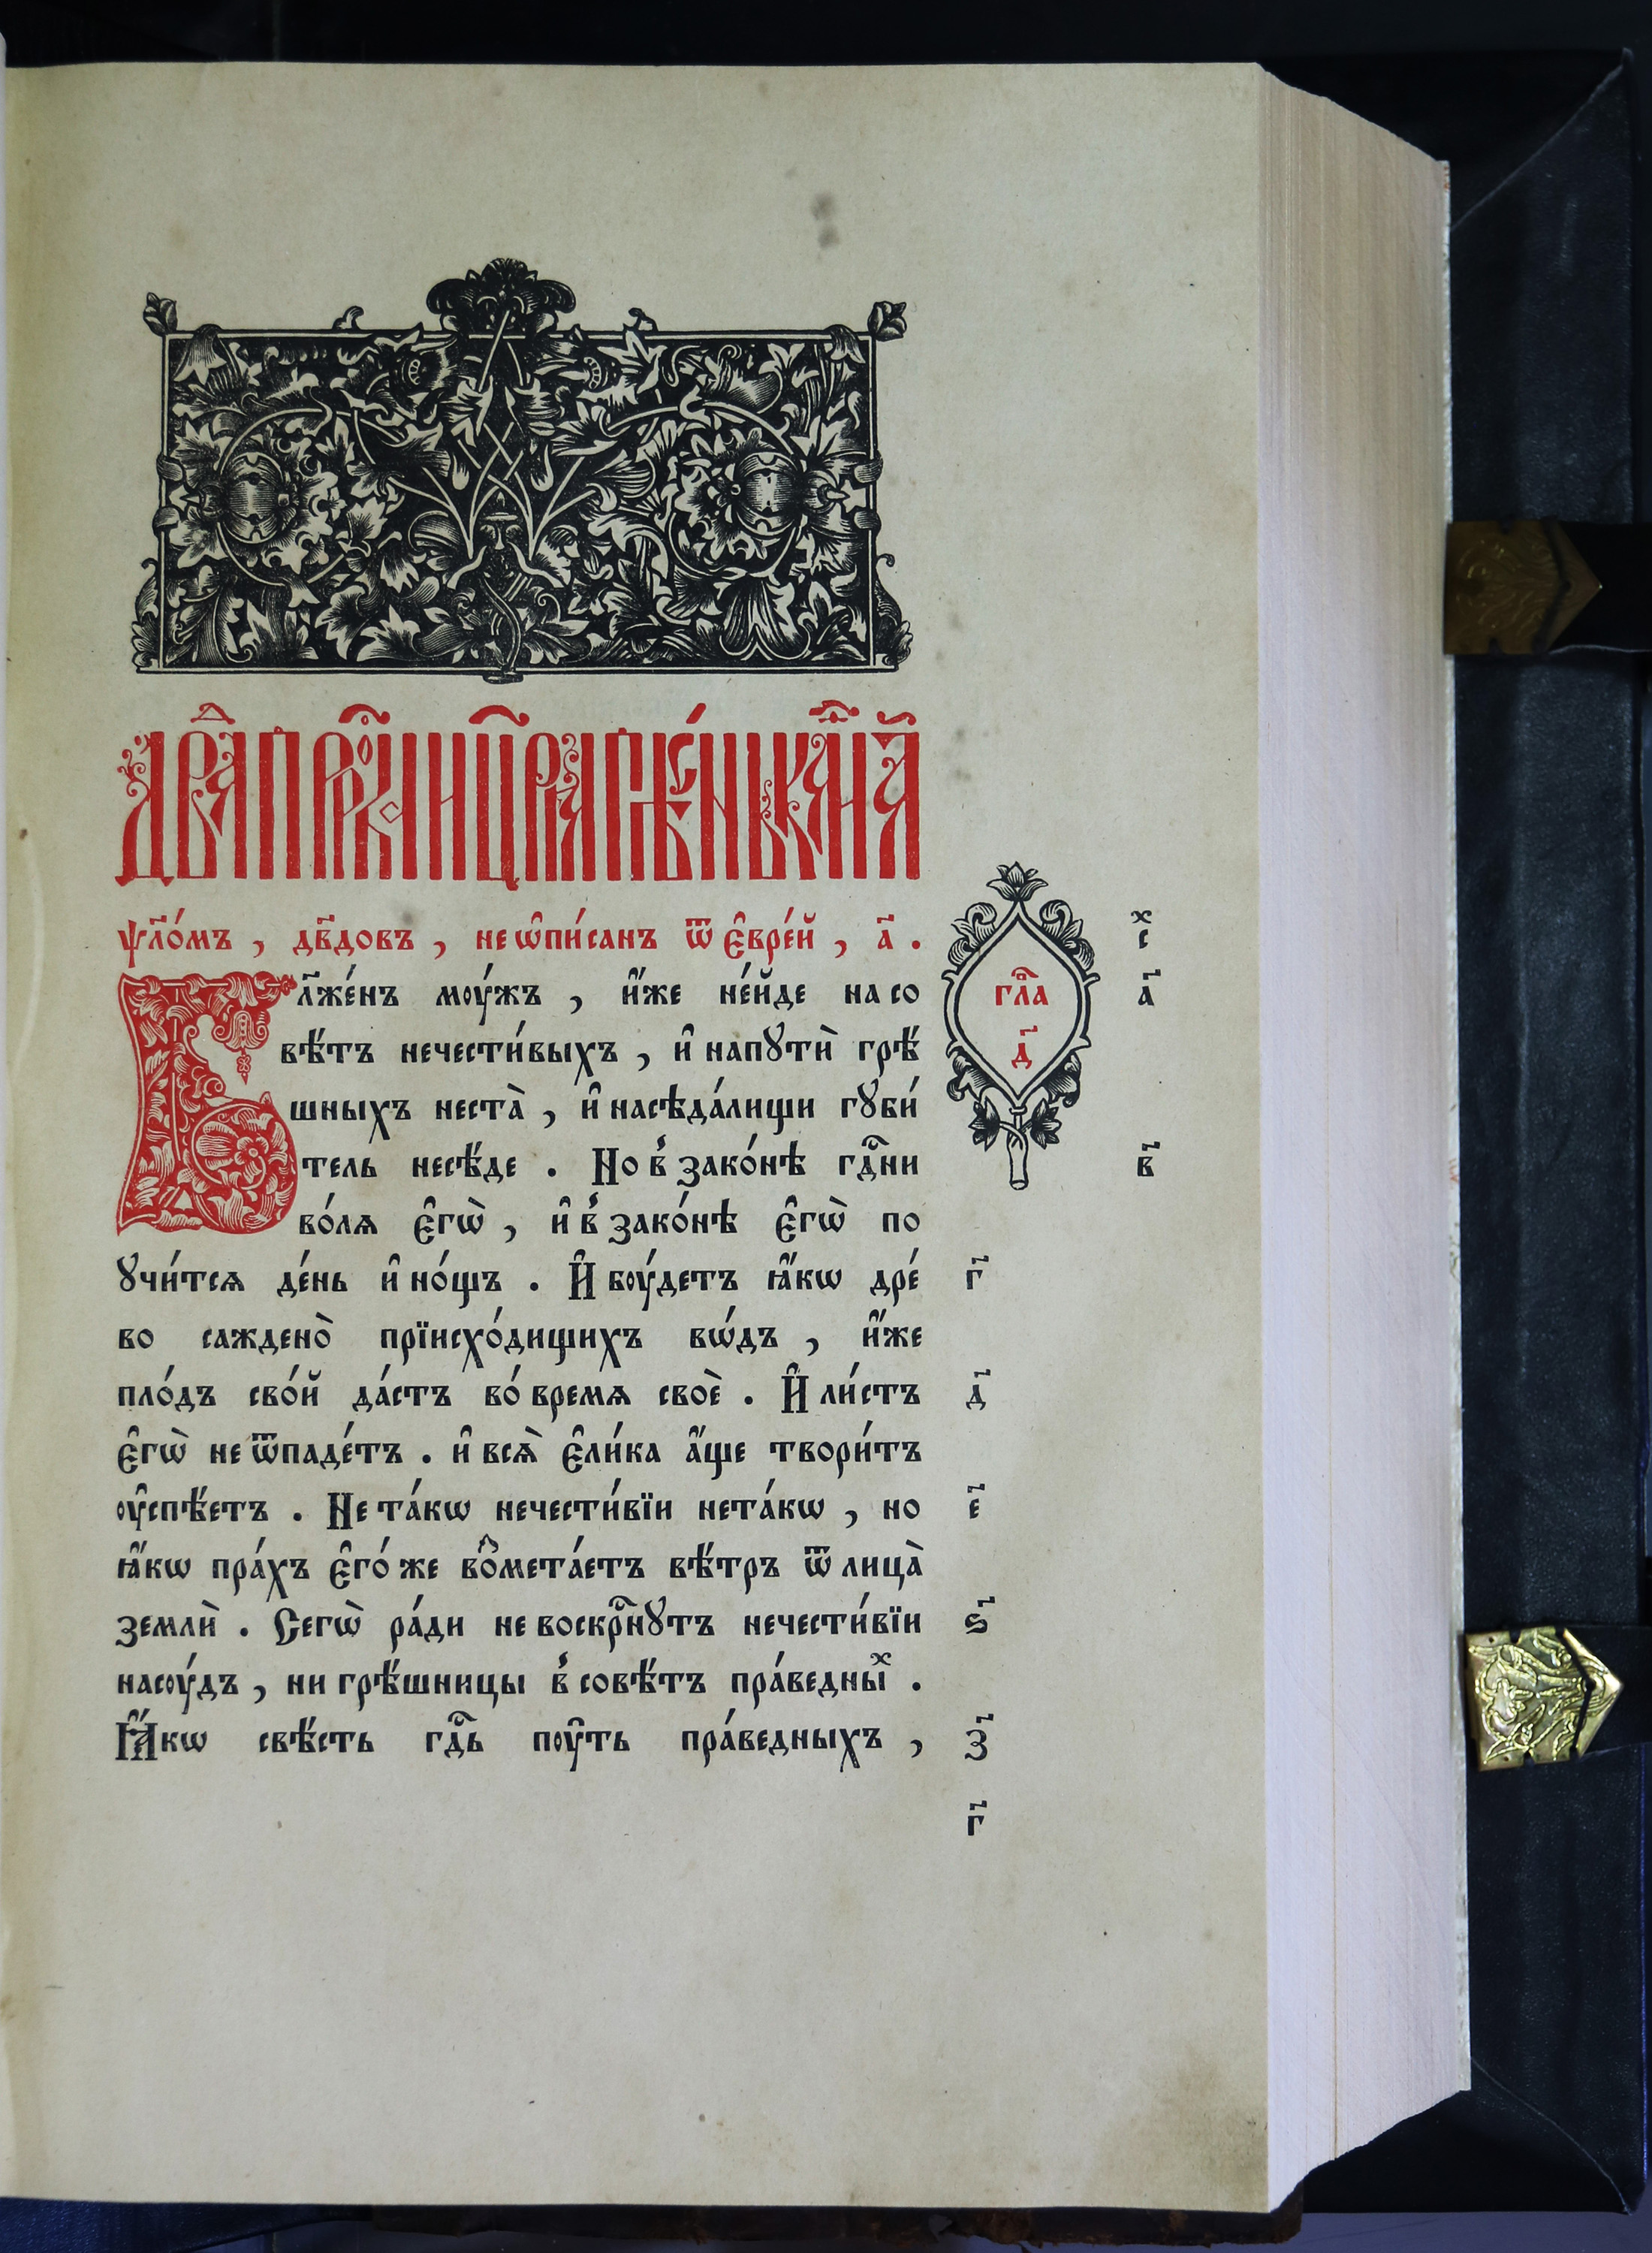 дв҃да прⷪ҇рка и цр҃ѧ пѣ́снь каѳи́сма а҃
ѱл҃о́мъ , дв҃довъ , не ѡ҆пи́санъ ѿ є҆вре́й , а҃ .
Бл҃же́нъ моу́жъ , и҆́же не́йде на со
вѣ́тъ нечести́выхъ , и҆ напꙋтѝ грѣ́
шныхъ неста̀ , и҆ насѣда́лищи гꙋби́
тель несѣ́де . Но в̾ зако́нѣ гдⷭ҇ни
во́лѧ є҆гѡ̀ , и҆ в̾ зако́нѣ є҆гѡ̀ по
ꙋчи́тсѧ де́нь и҆ но́щъ . И҆ боу́детъ ꙗ҆́кѡ дре́
во сажденѻ̀ прїисхо́дищихъ вѡ́дъ , и҆́же
пло́дъ сво́й да́стъ во́ времѧ своѐ . И҆ ли́стъ
є҆гѡ̀ не ѿпаде́тъ . и҆ всѧ̀ є҆ли́ка а҆́ще твори́тъ
оу҆спѣ́етъ . Не та́кѡ нечести́вїи нета́кѡ , но
ꙗ҆́кѡ пра́хъ є҆го́ же воⷥмета́етъ вѣ́тръ ѿ лица̀
землѝ . Сегѡ̀ ра́ди не воскрⷭ҇нꙋтъ нечести́вїи
насоу́дъ , ни грѣ́шницы в̾ совѣ́тъ пра́ведныⷯ .
Ꙗ҆́кѡ свѣ́сть гдⷭ҇ь поу҆ть пра́ведныхъ ,
глⷡ҇а
д҃
сⷯ
а҃
в҃
г҃
д҃
е҃
ѕ҃
з҃
г҃